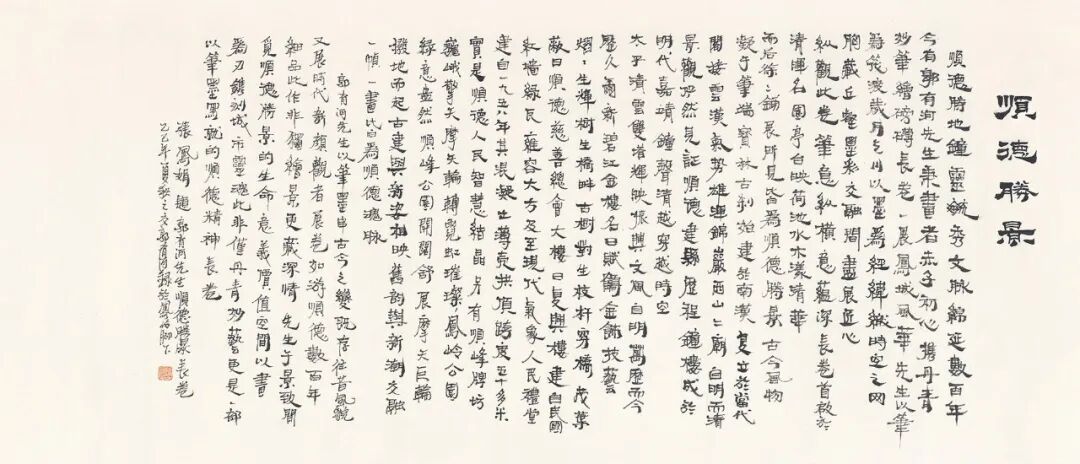 順德勝景
順德勝地鐘靈毓秀文脉綿延數百年
今有郭有河先生秉畫者赤子初心携丹青
妙筆繪磅礴長卷一展鳳城風華先生以筆
爲筏渡歲月之川以墨爲經緯織時空之网
胸藏丘壑墨彩交融間盡展匠心
縱觀此卷筆意纵横意蕴深長卷首啟於
清暉名園亭台映荷池水木漾清華
而后徐徐鋪展所見皆爲順德勝景古今風物
凝于筆端寶林古刹始建於南漢复立於當代
閣接雲漢氣勢雄渾錦巖西山二廟自明而清
景觀孑然見証順德建縣歷程鐘樓成於
明代嘉靖鐘聲清越穿越時空
太平清雲雙塔輝映振興文風自明萬歷而今
歷久彌新碧江金樓名曰賦鶴金飾技藝
熠熠生輝樹生橋畔古樹對生枝杆穿橋茂葉
蔽日順德慈善總會大樓曰复興樓建自民國
紅墙綠瓦雍容大方及至現代氣象人民禮堂
建自一九五六年其混凝土薄壳拱頂跨度五十多米
實是順德人民智慧結晶另有順峰牌坊
巍峨擎天摩天輪轉霓虹璀璨鳳岭公園
綠意盎然順峰公園開闊舒展摩天巨輪
拔地而起古建與新姿相映舊韵與新潮交融
一幀一畫皆爲順德魂脉
郭有河先生以筆墨串古今之變既存往昔風貌
又展時代新顏觀者展卷如游順德數百年
細品此作非獨繪景更藏深情先生于景致間
覓順德勝景的生命意義價值空間以畫
爲刀鐫刻城市靈魂此非僅丹青妙藝更是一部
以筆墨寫就的順德精神長卷
張鳳娟題郭有河先生順德勝景長卷
乙巳年首夏